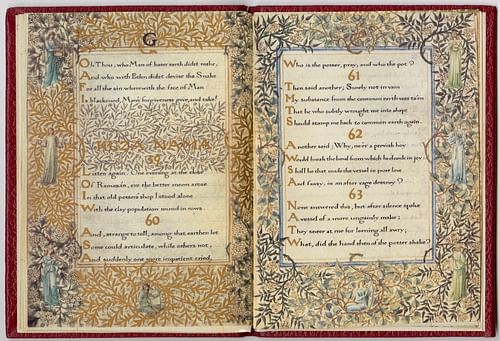 Oh Thou, who Man of baser earth didst make,
And who with Eden didst devise the Snake
For all the sin wherewith the face of Man
Is blackened, Man's forgiveness give, and take!
KUZA NAMA
59
Listen again. One evening at the close
Of Ramazán, ere the better moon arose
In that old potter's shop I stood alone
With the clay population round in rows
60
And, strange to tell, among that earthen lot
Some could articulate, while others not,
And suddenly one more impatient cried,
Who is the potter, pray, and who the pot?
61
Then said another, Surely not in vain
My substance from the common earth was ta'en
That he who subtly wrought me into shape
Should stamp me back to common earth again.
62
Another said, Why, ne'er a peevish boy
Would break the bowl from which he drank in joy
Shall he that made the vessel in pure love
And fancy, in an after rage destroy?
63
None answered this, but after silence spake
A vessel of a more ungainly make;
They sneer at me for leaning all awry;
What, did the hand then of the potter shake?